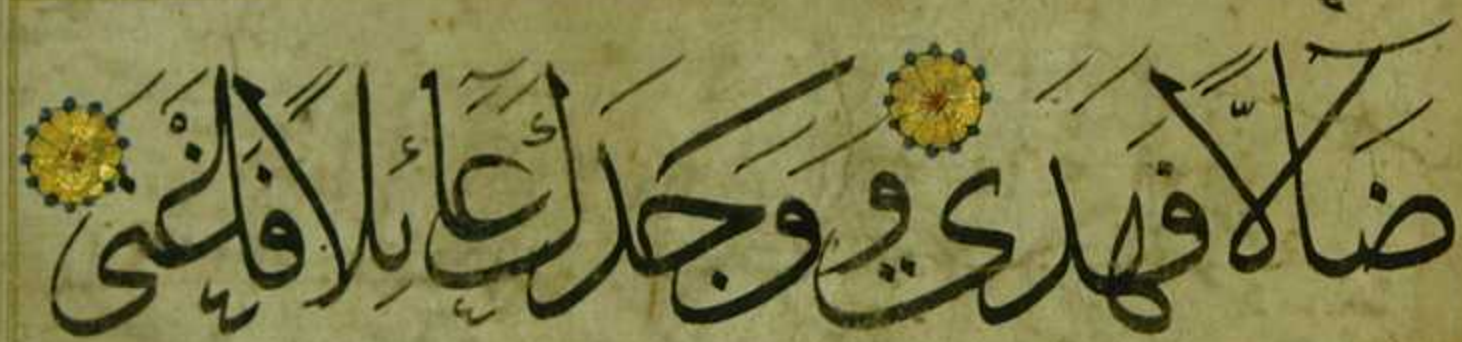 ضَآلًّا فَهَدَى وَوَجَدَكَ عَآئِلًا فَأَغْنَى